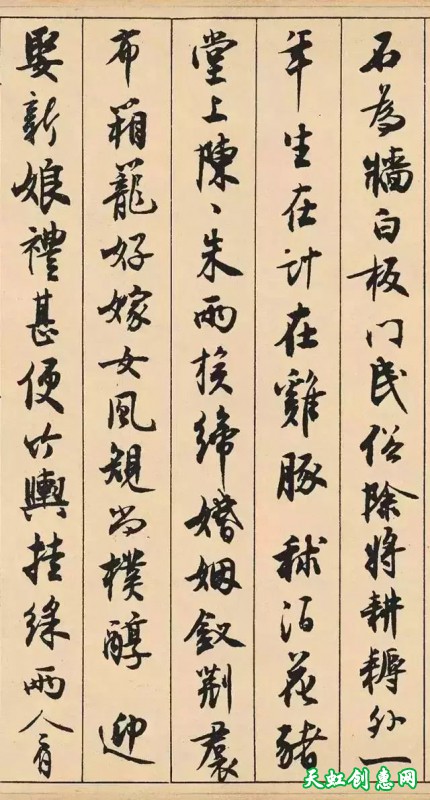 石為牆白板門民俗除將耕耨外一
年生在計在雞豚 秫酒花豬
堂上陳〻朱兩族締婚姻釵荊裠
布箱籠好嫁女風規尚樸醇 迎
娶新娘禮甚便竹輿挂綵兩人肩
天虹创惠网